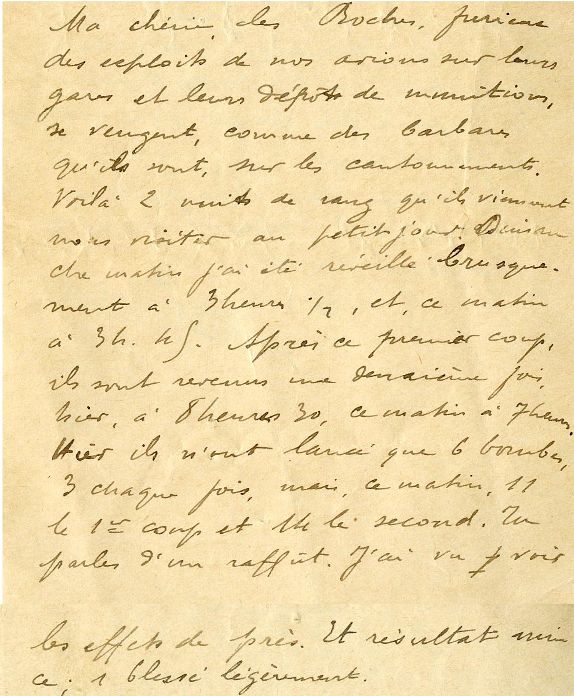 Ma chérie, les Boches, furieux
des exploits de nos avions sur leurs
gares et leurs dépôts de munitions,
se vengent, comme des barbares
qu'ils sont, sur les cantonnements.
Voilà 2 nuits de rang qu'ils viennent
nous visiter au petit jour. Diman
che matin j'ai été réveillé brusque-
ment à 3 heures 1/2, et, ce matin
à 3h. 45. Après ce premier coup,
ils sont revenus une deuxième fois,
hier, à 8 heures 30, ce matin à 7 heures.
Hier ils n'ont lancé que 6 bombes,
3 chaque fois, mais, ce matin, 11
le 1er coup et 14 le second. Tu
parles d'un raffût. J'ai vu voir
les effets de près. Et résultat min
ce; 1 blessé légèrement.